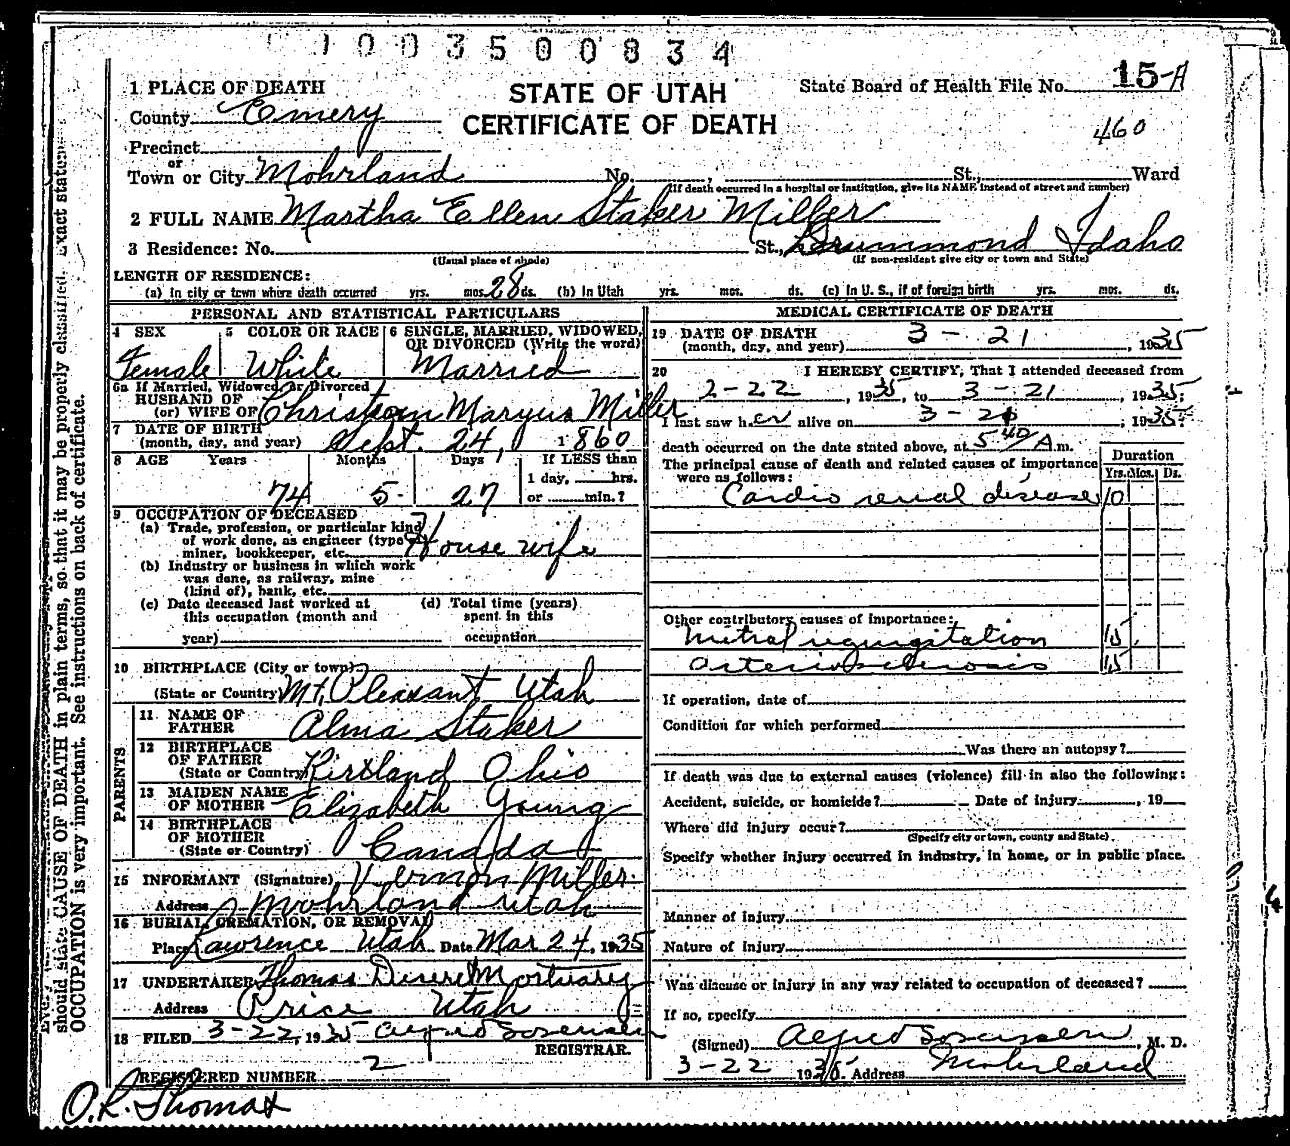 1003500834
1 PLACE OF DEATH
STATE OF UTAH
CERTIFICATE OF DEATH
State Board of Health File No. 15-A
460
County Emery
Precinct
or
Town or City Mohrland No. , St., Ward
(If death occurred in a hospital or institution, give its NAME instead of street and number)
2 FULL NAME Martha Ellen Staker Miller
3 Residence: No. St., Drummond Idaho
(Usual place of abode) (If non-resident give city or town and State)
LENGTH OF RESIDENCE:
(a) In city or town where death occurred yrs. mos. 28 ds. (b) In Utah yrs. mos. ds. (c) In U. S., if of foreign birth yrs. mos. ds.
PERSONAL AND STATISTICAL PARTICULARS
4 SEX 5 COLOR OR RACE 6 SINGLE, MARRIED, WIDOWED, OR DIVORCED (Write the word)
Female White Married
6a If Married, Widowed, or Divorced
HUSBAND OF
(or) WIFE OF Christian Maryus Miller
7 DATE OF BIRTH
(month, day, and year) Sept. 24, 1860
8 AGE Years Months Days If LESS than
1 day, hrs.
74 5 27 or min.?
9 OCCUPATION OF DECEASED
(a) Trade, profession, or particular kind
of work done, as engineer (type of
miner, bookkeeper, etc. House wife
(b) Industry or business in which work
was done, as railway, mine
(kind of), bank, etc.
(c) Date deceased last worked at
this occupation (month and
year)
(d) Total time (years)
spent in this
occupation
10 BIRTHPLACE (City or town)
(State or Country) Mt. Pleasant Utah
PARENTS
11 NAME OF
FATHER Alma Staker
12 BIRTHPLACE
OF FATHER
(State or Country) Kirtland Ohio
13 MAIDEN NAME
OF MOTHER Elizabeth Young
14 BIRTHPLACE
OF MOTHER
(State or Country) Canada
15 INFORMANT (Signature) Vernon Miller
Address Mohrland Utah
16 BURIAL, CREMATION, OR REMOVAL
Place Lawrence Utah Date Mar 24, 1935
17 UNDERTAKER Thomas Deseret Mortuary
Address Price Utah
18 FILED 3-22, 1935 Alfred Sorensen
REGISTRAR.
REGISTERED NUMBER 2
O. R. Thomas
MEDICAL CERTIFICATE OF DEATH
19 DATE OF DEATH
(month, day, and year) 3-21, 1935
20 I HEREBY CERTIFY, That I attended deceased from
2-22, 1935, to 3-21, 1935;
I last saw her alive on 3-20; 1935;
death occurred on the date stated above, at 5 40/A m.
The principal cause of death and related causes of importance
were as follows:
Duration
Yrs. Mos. Ds.
Cardio renal disease 10
Other contributory causes of importance:
Mitral regurgitation 15
arteriosclerosis 15
If operation, date of
Condition for which performed
Was there an autopsy?
If death was due to external causes (violence) fill in also the following:
Accident, suicide, or homicide? Date of injury , 19
Where did injury occur?
(Specify city or town, county and State)
Specify whether injury occurred in industry, in home, or in public place.
Manner of injury
Nature of injury
Was disease or injury in any way related to occupation of deceased?
If so, specify
(Signed) Alfred Sorensen, M. D.
3-22 1935. Address Mohrland
should state CAUSE OF DEATH in plain terms, so that it may be properly classified. Exact statem
OCCUPATION is very important. See instructions on back of certificate.